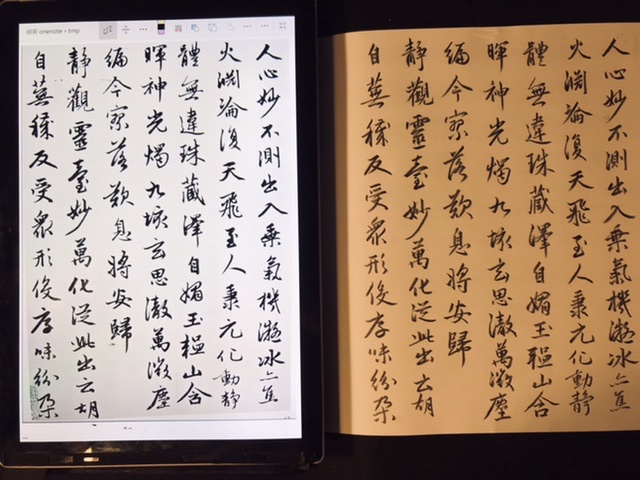 onenote > tmp
人心妙不測出入乘氣機凝冰亦焦
火淵淪復天飛至人秉元化動靜
體無違珠藏澤自媚玉韞山含
暉神光燭九垓玄思徹萬微塵
編今寥落歎息將安歸
靜觀靈臺妙萬化從此出云胡
自蕪穢反受眾形役厚味紛朵
人心妙不測出入乘氣機凝冰亦焦
火淵淪復天飛至人秉元化動靜
體無違珠藏澤自媚玉韞山含
暉神光燭九垓玄思徹萬微塵
編今寥落歎息將安歸
靜觀靈臺妙萬化從此出云胡
自蕪穢反受眾形役厚味紛朵